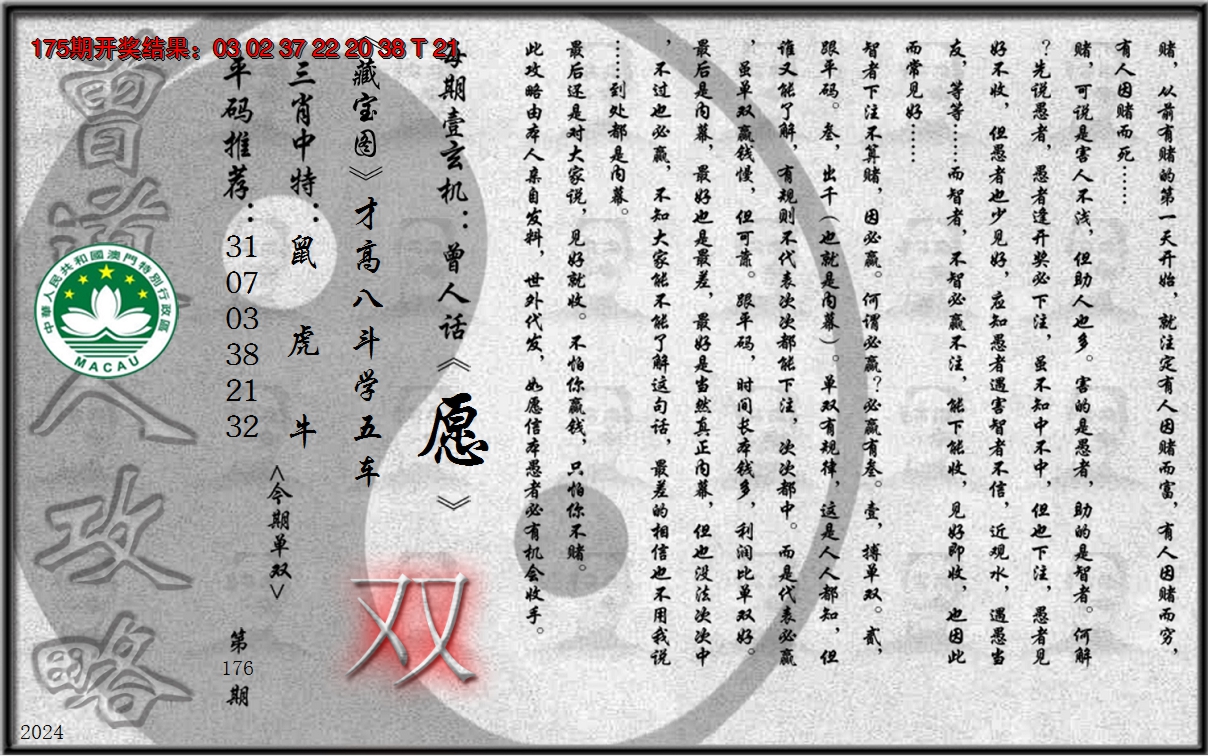 175期开奖结果：03 02 37 22 20 38 T 21
赌，从前有赌的第一天开始，就注定有人因赌而富，有人因赌而穷，
有人因赌而死……
赌，可说是害人不浅，但助人也多。害的是愚者，助的是智者。何解
？先说愚者，愚者逢开奖必下注，虽不知中不中，但也下注，愚者见
好不收，但愚者也少见好，应知愚者遇害智者不信，近观水，遇愚当
友，等等……而智者，不智必赢不注，能下能收，见好即收，也因此
而常见好……
智者下注不算赌，因必赢。何谓必赢？必赢有叁。壹，搏单双。贰，
跟平码。叁，出千（也就是内幕）。单双有规律，这是人人都知，但
谁又能了解，有规则不代表次次都能下注，次次都中。而是代表必赢
，虽单双赢钱慢，但可靠。跟平码，时间长本钱多，利润比单双好。
最后是内幕，最好也是最差，最好是当然真正内幕，但也没法次次中
，不过也必赢，不知大家能不能了解这句话，最差的相信也不用我说
……到处都是内幕。
最后还是对大家说，见好就收。不怕你赢钱，只怕你不赌。
此攻略由本人亲自发料，世外代发，如愿信本愚者必有机会收手。
每期壹玄机：曾人话《愿》
《藏宝图》才高八斗学五车
三肖中特：鼠 虎 牛
<今期单双>
双
平码推荐：31 07 03 38 21 32
第176期
曾道人攻略
中華人民共和國澳門特別行政區
MACAU
2024